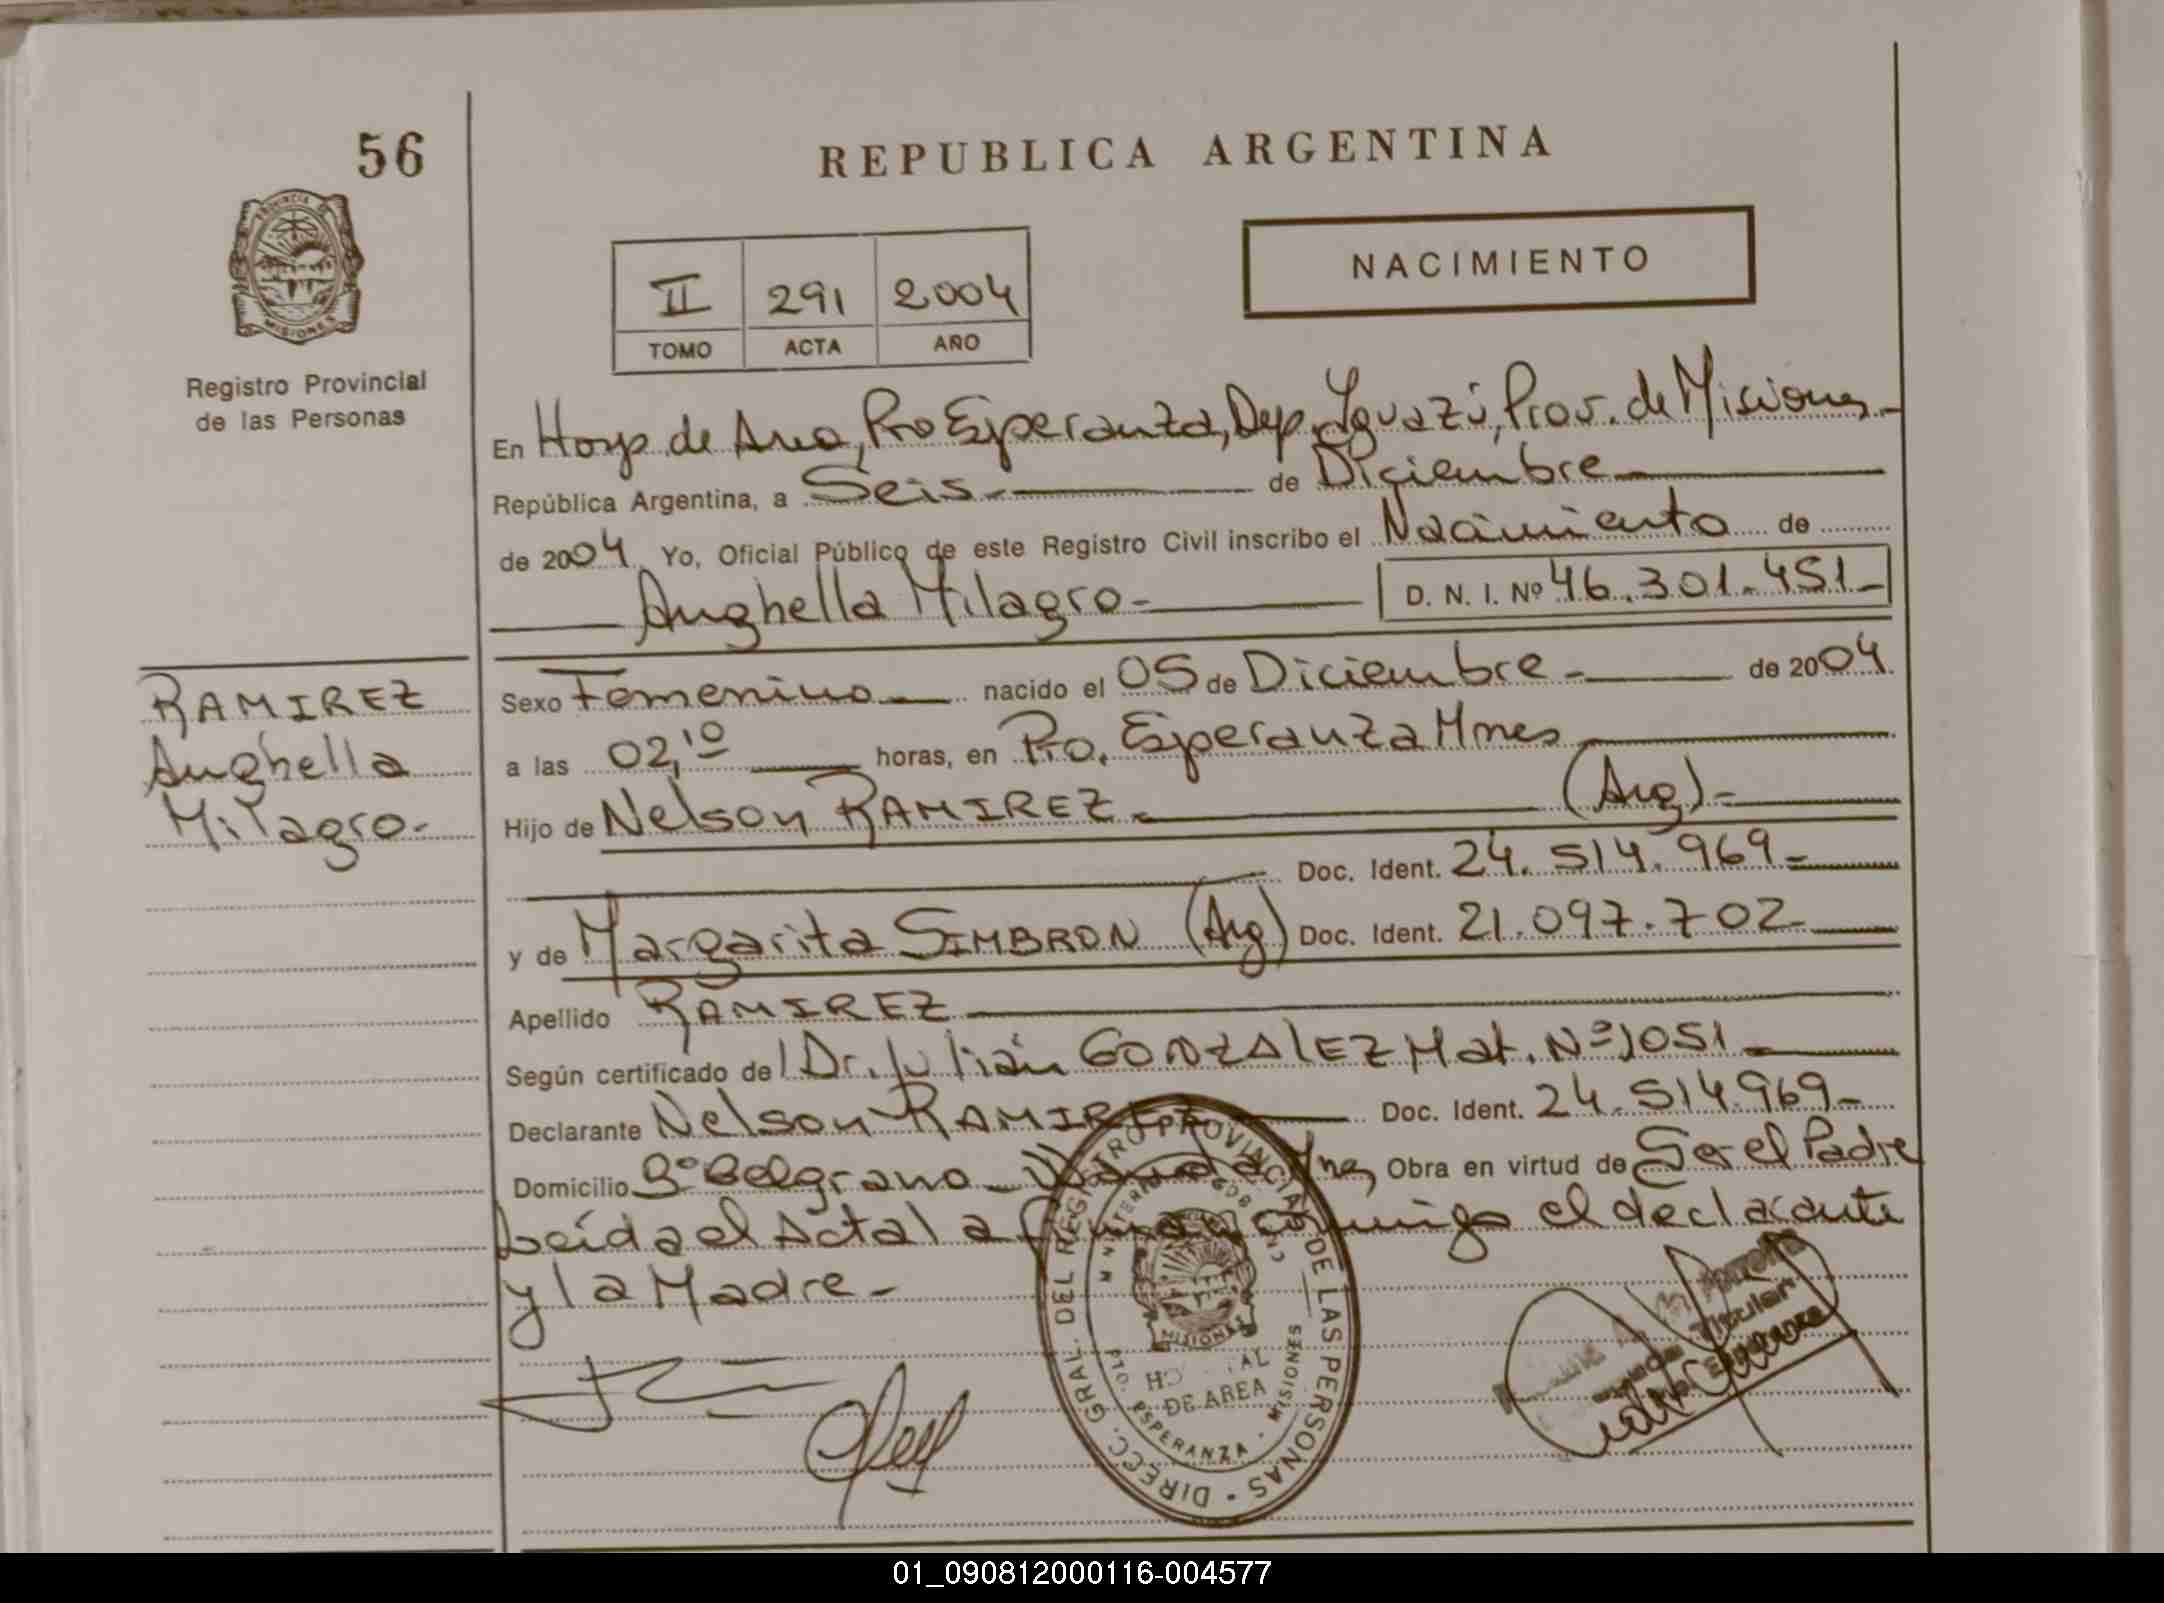 56
REPUBLICA ARGENTINA
NACIMIENTO
II 291 2004
TOMO ACTA AÑO
PROVINCIA DE
MISIONES
Registro Provincial
de las Personas
En Hosp. de Area, Pto Esperanza, Dep. Iguazú, Prov. de Misiones
República Argentina, a Seis de Diciembre
de 2004 Yo, Oficial Público de este Registro Civil inscribo el Nacimiento de
Anghella Milagro D. N. I. Nº 46.301.451
RAMIREZ
Anghella
Milagro
Sexo Femenino nacido el 05 de Diciembre de 2004
a las 02,10 horas, en Pto. Esperanza Mnes
Hijo de Nelson RAMIREZ (Arg)
Doc. Ident. 24.514.969
y de Margarita SIMBRON (Arg) Doc. Ident. 21.097.702
Apellido RAMIREZ
Según certificado del Dr. Julián GONZALEZ Mat. Nº 1051
Declarante Nelson RAMIREZ Doc. Ident. 24.514.969
Domicilio Bº Belgrano Wanda Mnes Obra en virtud de Ser el Padre
Leída el Acta la firman conmigo el declarante
y la Madre
DIREC. GRAL. DEL REGISTRO PROVINCIAL DE LAS PERSONAS
MISIONES
DE AREA
PTO. ESPERANZA - MISIONES
Titular
01_090812000116-004577